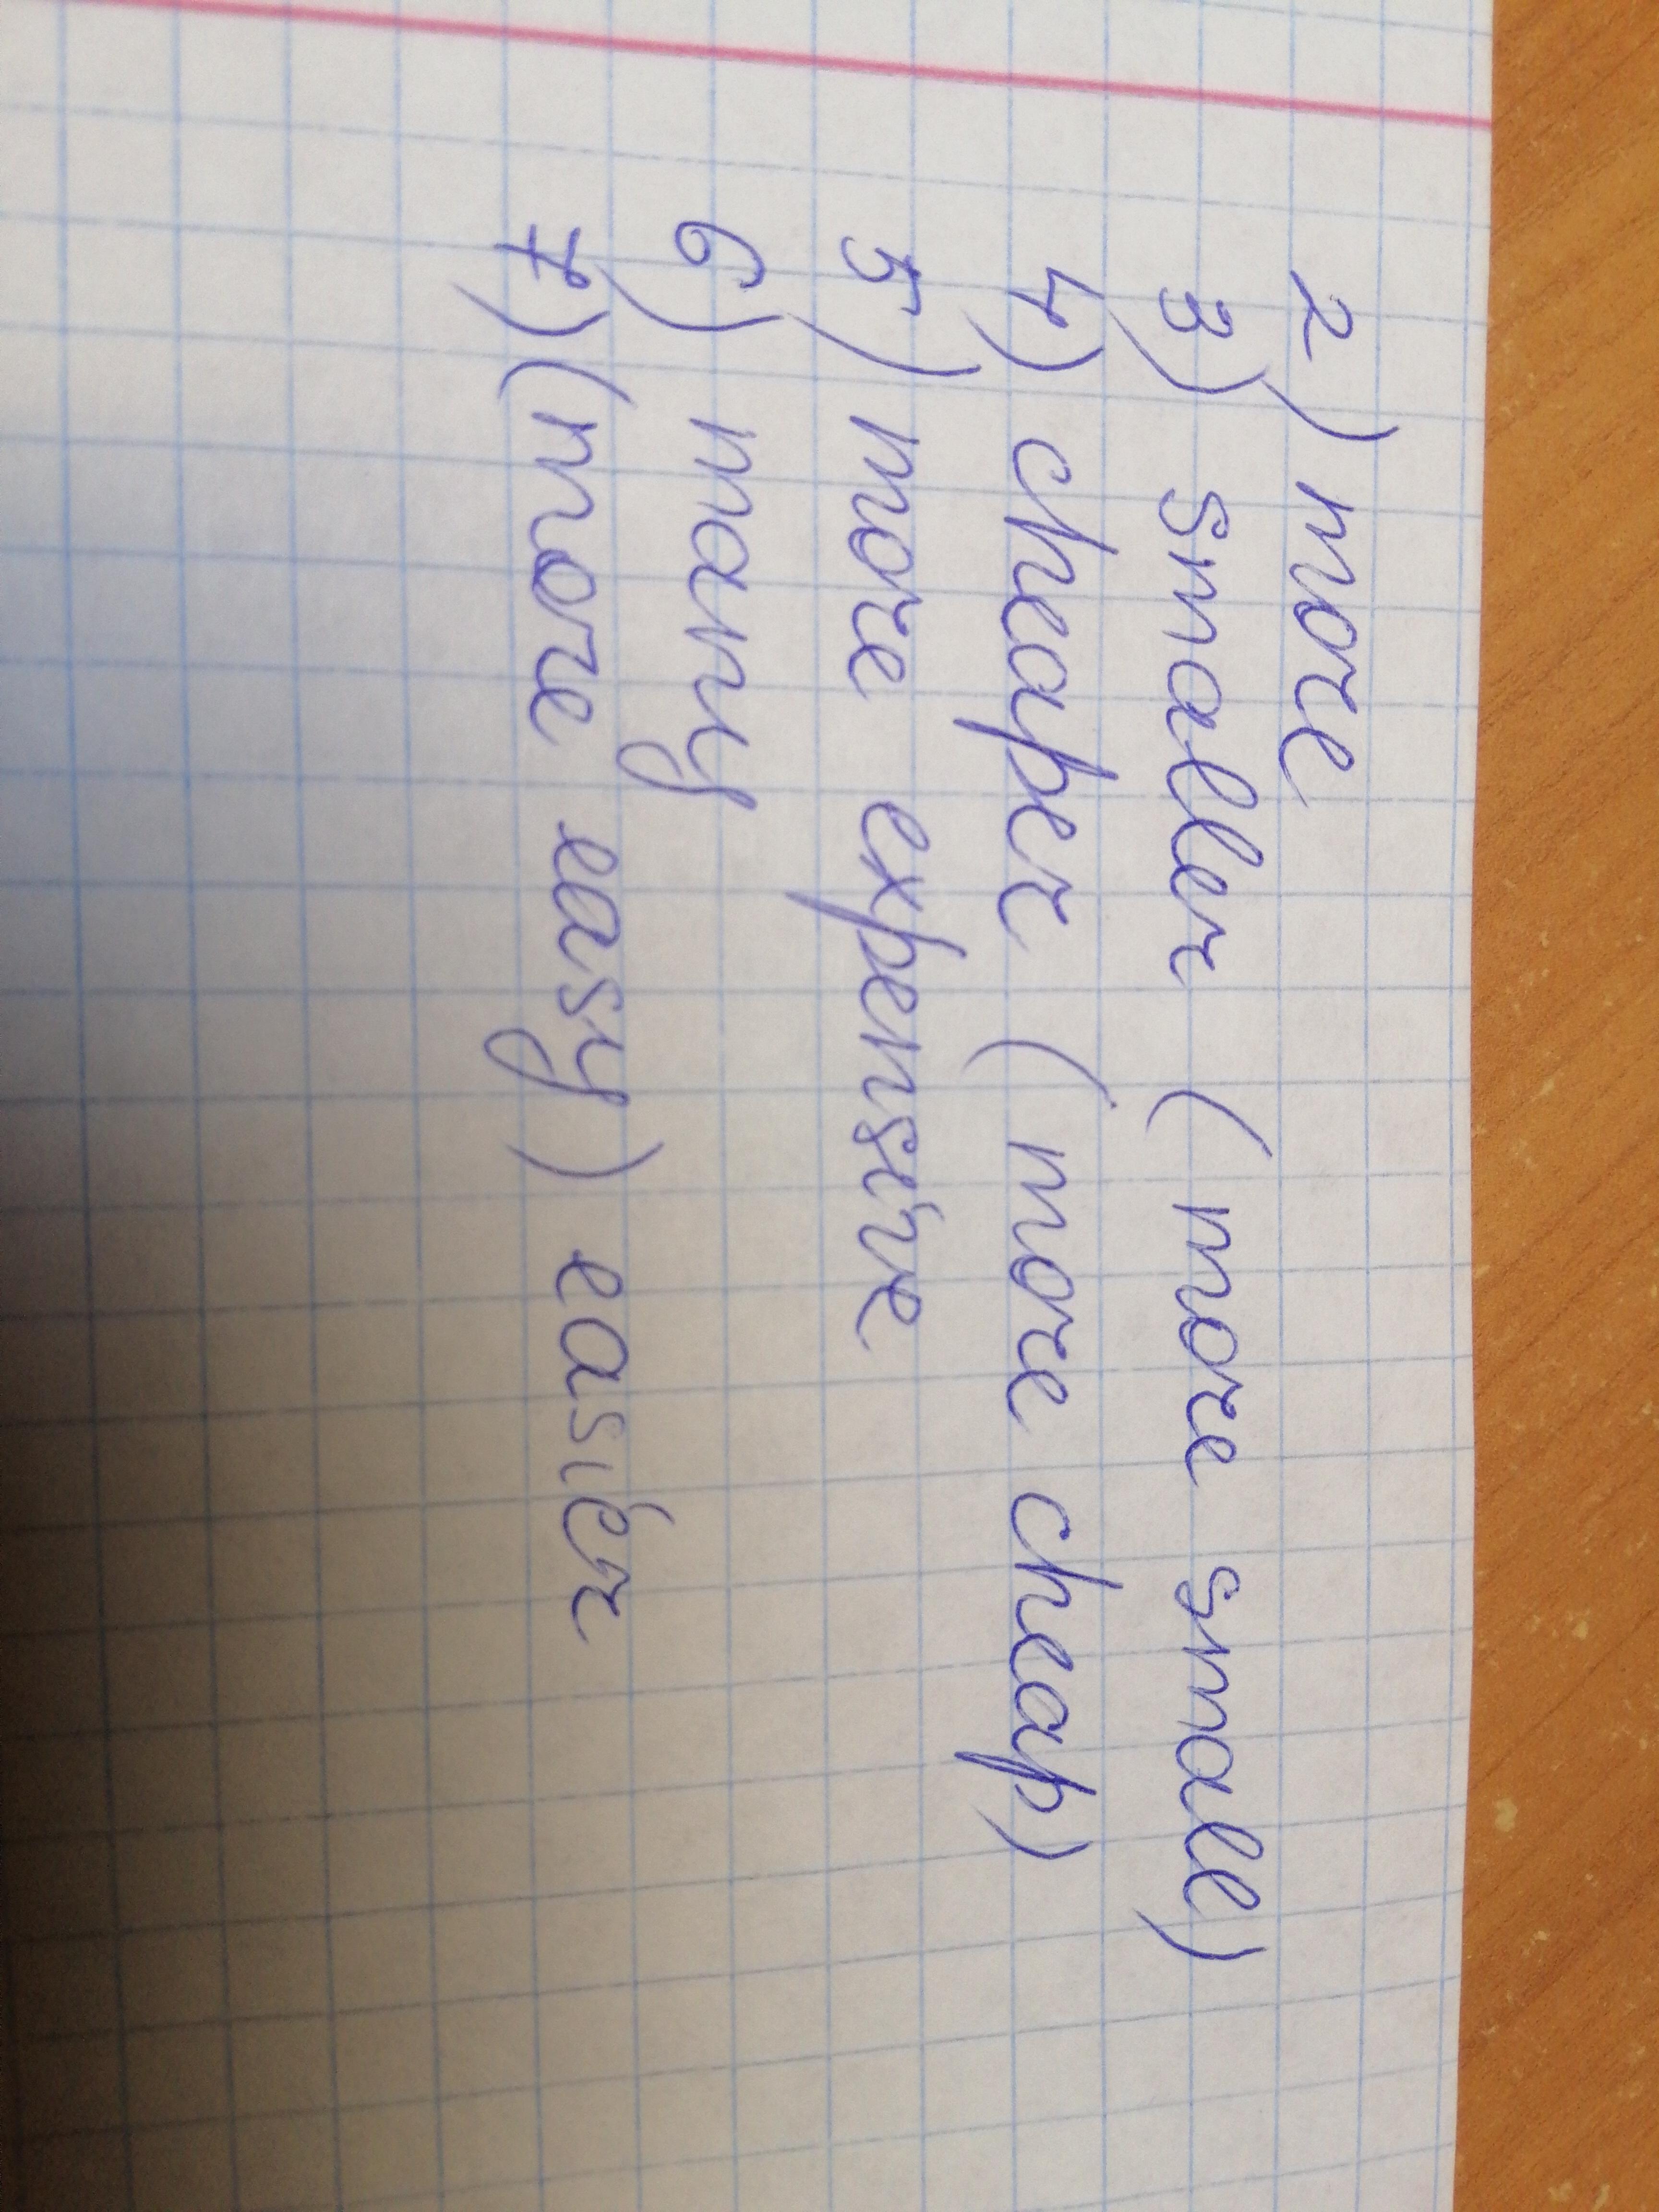 2) more
3) smaller (more small)
4) cheaper (more cheap)
5) more expensive
6) many
7) (more easy) easier